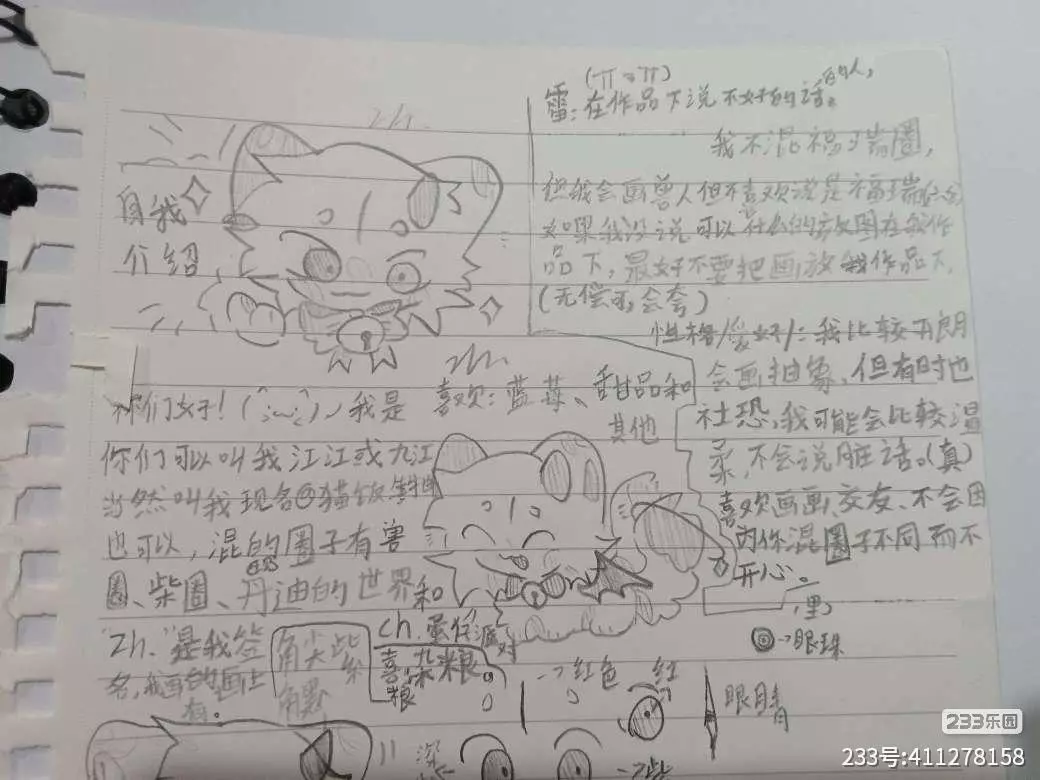 自我
介绍
zh.
(π π)
雷:在作品下说不好的话。的人,
我不混福瑞圈,
但我会画兽人但不喜欢说是福瑞什么
如果我没说可以什么的放图在我作
品下,最好不要把画放我作品下,
(无偿可,会夸)
性格/爱好/:我比较开朗
会画抽象,但有时也
社恐,我可能会比较温
柔,不会说脏话。(真)
喜欢画画交友、不会因
为你混圈子不同而不
开心。
你们好!我是
你们可以叫我江江或九江
当然叫我现名@猫饭
也可以,混的圈子有兽
圈、柴圈、丹迪的世界和
zh.
喜欢:蓝莓、甜品和
其他
"Zh."是我签
名,我画的画上
有。
角尖紫
角黑
ch.蛋仔派对
喜柴粮。
粮
→红色 红
(黑)
→眼珠
眼睛
深
→紫
233乐园
233号:411278158